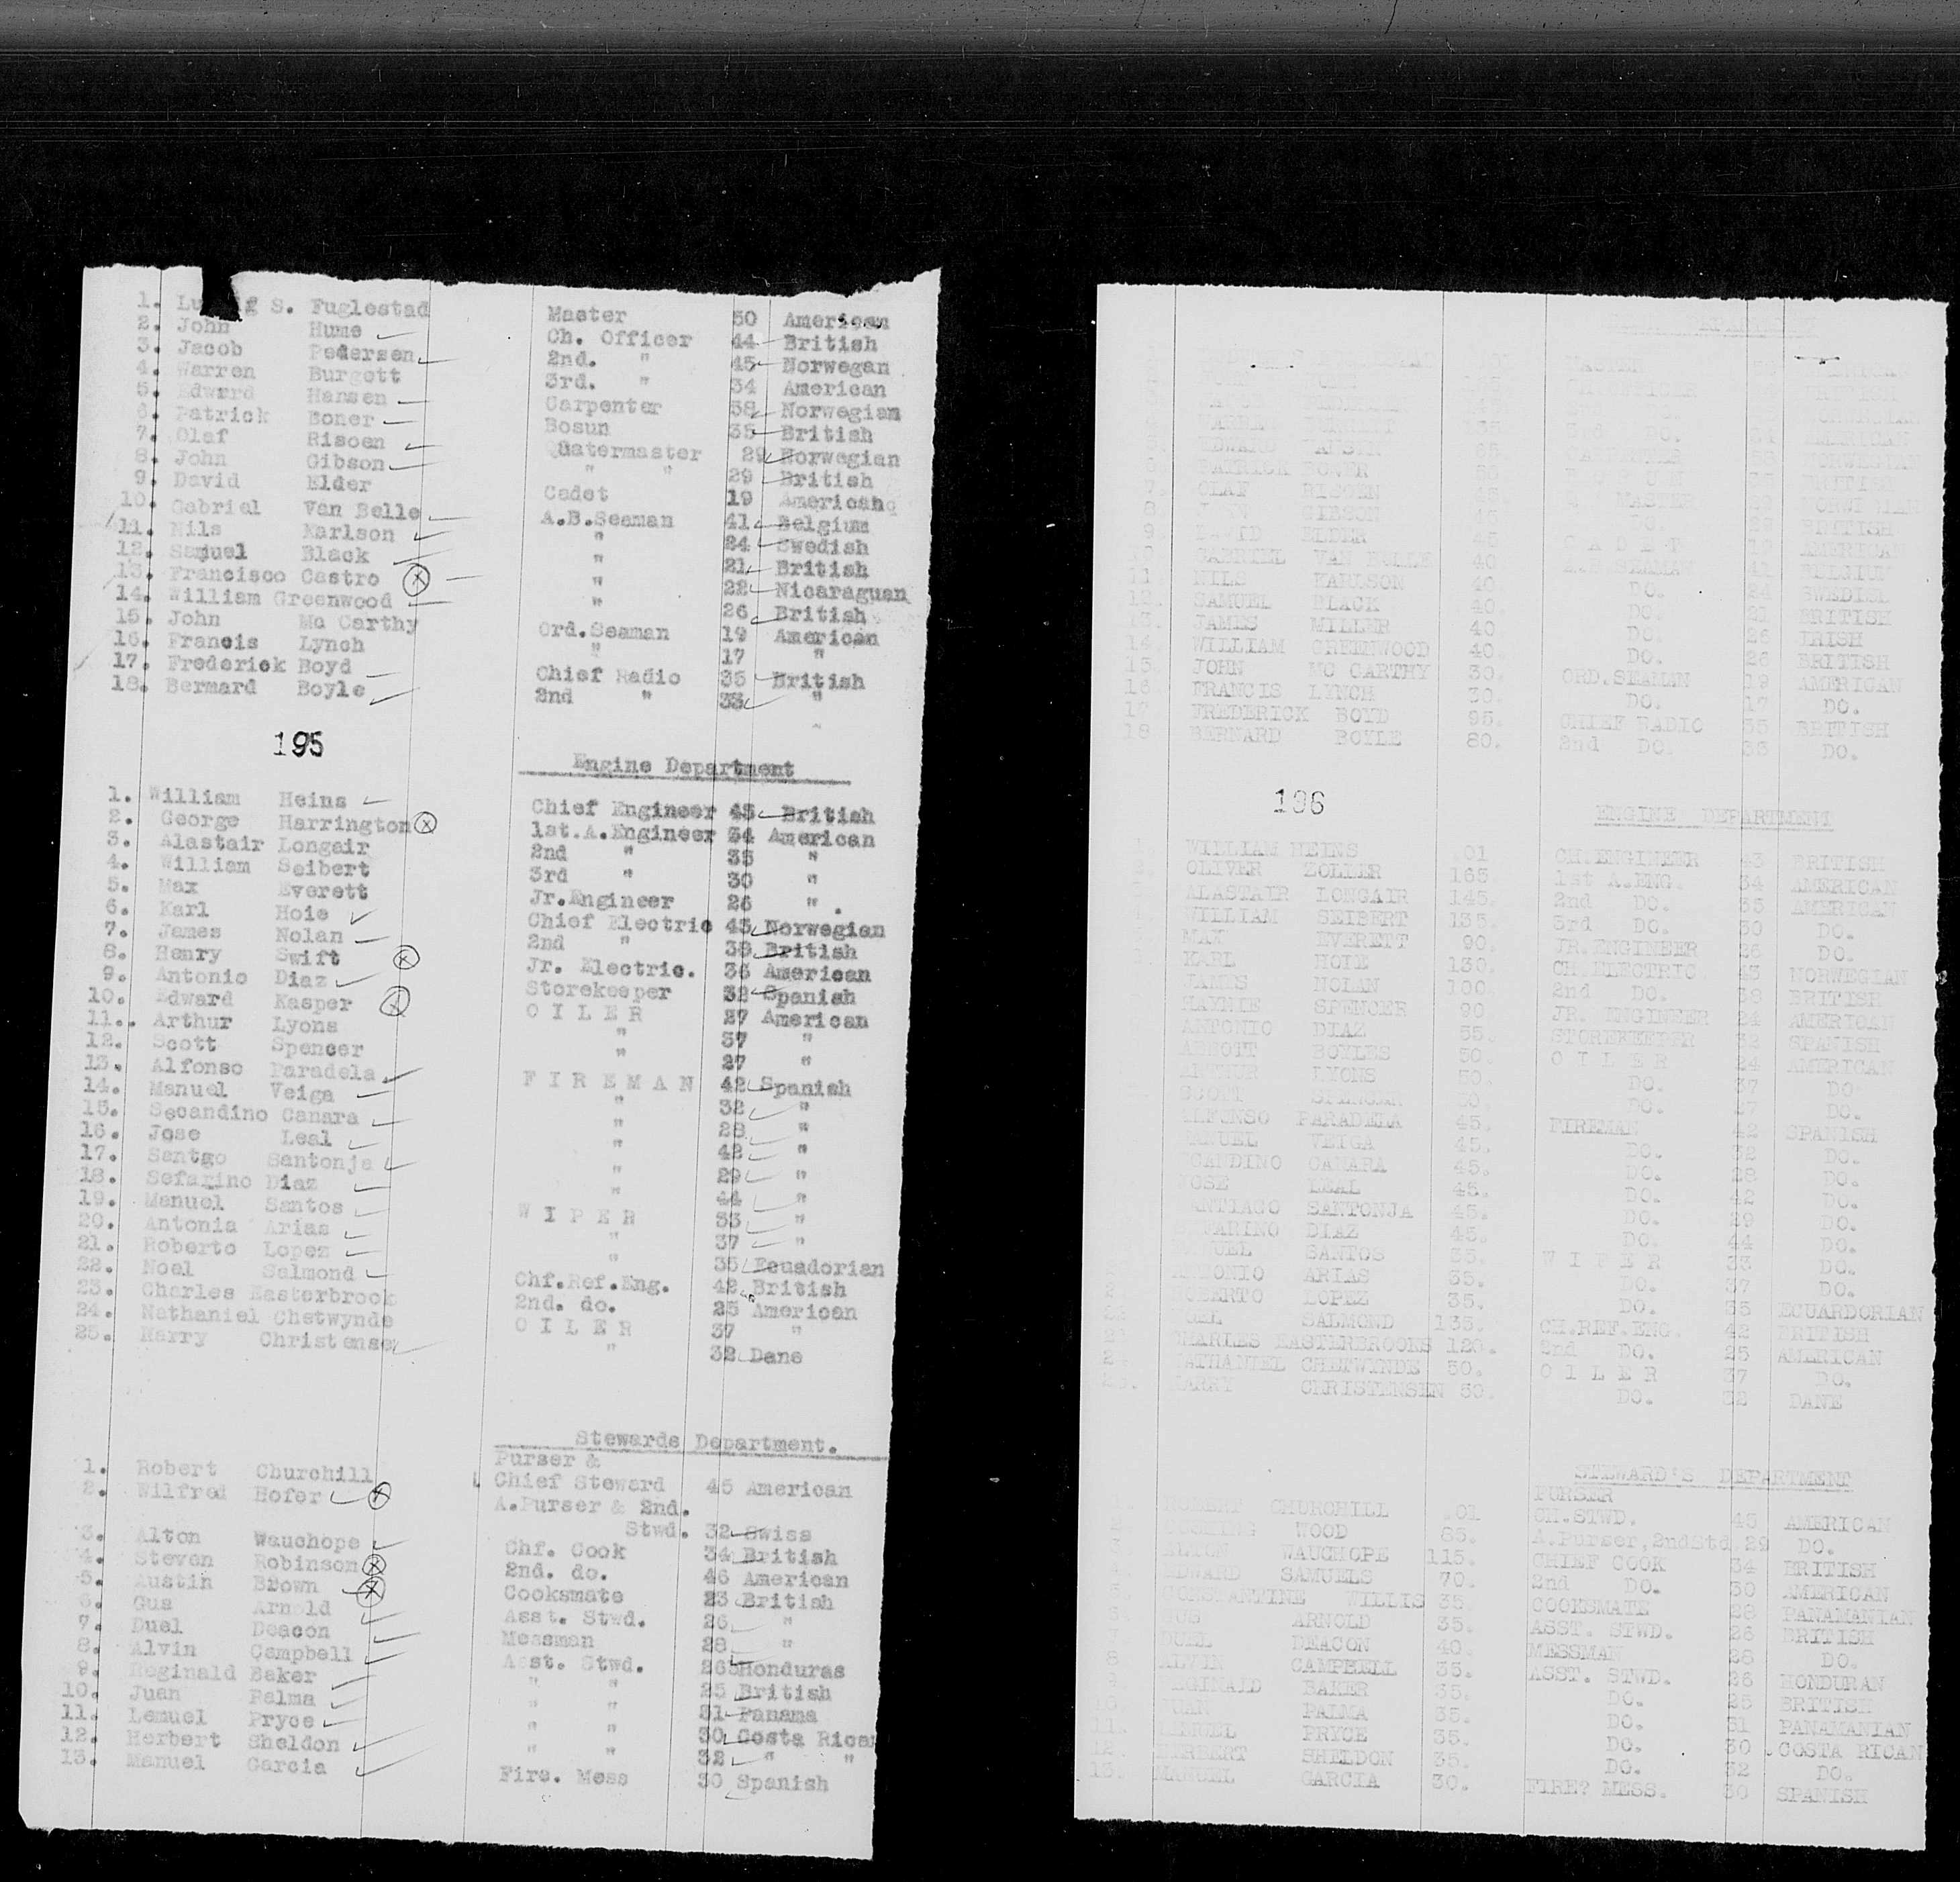 1. Lu g S. Fuglestad Master 50 American
2. John Hume Ch. Officer 44 British
3. Jacob Pedersen 2nd. " 45 Norwegan
4. Warren Burgett 3rd. " 34 American
5. Edwrrd Hansen Carpenter 38 Norwegian
6. Patrick Boner Bosun 35 British
7. Olaf Risoen Quatermaster 29 Norwegian
8. John Gibson " " 29 British
9. David Elder Cadet 19 American
10. Gabrial Van Belle A.B.Seaman 41 Belgium
11. Nils Karlson " 24 Swedish
12. Samuel Black " 21 British
13. Francisco Castro " 22 Nicaraguan
14. William Greenwood " 26 British
15. John Mc Carthy Ord.Seaman 19 American
16. Francis Lynch " 17 "
17. Frederick Boyd Chief Radio 35 British
18. Bermard Boyle 2nd " 33 "
195
Engine Department
1. William Heins Chief Engineer 43 British
2. George Harrington 1st.A.Engineer 34 American
3. Alastair Longair 2nd " 35 "
4. William Seibert 3rd " 30 "
5. Max Everett Jr.Engineer 26 "
6. Karl Hoie Chief Electric 43 Norwegian
7. James Nolan 2nd " 38 British
8. Henry Swift Jr. Electric. 36 American
9. Antonio Diaz Storekeeper 32 Spanish
10. Edward Kasper O I L E R 27 American
11. Arthur Lyons " 37 "
12. Scott Spencer " 27 "
13. Alfonso Paradela F I R E M A N 42 Spanish
14. Manuel Veiga " 32 "
15. Secandino Canara " 28 "
16. Jose Leal " 42 "
17. Santgo Santonja " 29 "
18. Sefarino Diaz " 44 "
19. Manuel Santos W I P E R 33 "
20. Antonia Arias " 37 "
21. Roberto Lopez " 35 Ecuadorian
22. Noel Salmond Chf.Ref.Eng. 42 British
23. Charles Easterbrook 2nd. do. 25 American
24. Nathaniel Chetwynde O I L E R 37 "
25. Harry Christense " 32 Dane
Stewards Department.
Purser &
1. Robert Churchill Chief Steward 45 American
2. Wilfred Hofer A.Purser & 2nd.
Stwd. 32 Swiss
3. Alton Wauchope Chf. Cook 34 British
4. Steven Robinson 2nd. do. 46 American
5. Austin Brown Cooksmate 23 British
6. Gus Arnold Asst. Stwd. 26 "
7. Duel Deacon Messman 28 "
8. Alvin Campbell Asst. Stwd. 26 Honduras
9. Reginald Baker " " 25 British
10. Juan Palma " " 31 Panama
11. Lemuel Pryce " " 30 Costa Rican
12. Herbert Sheldon " " 32 " "
13. Manuel Garcia Fire. Mess 30 Spanish
AMERICAN
EDWARD
PATRICK BONER BRITISH
7. OLAF RISOEN
8. GIBSON DO. BRITISH
9. DAVID ELDER C A D E T AMERICAN
GABRIEL VAN BELLE 40 A.B.SEAMAN 41 BELGIUM
11 NILS KARLSON 40. DO. 24 SWEDISH
12. SAMUEL BLACK 40. DO. 21 BRITISH
13. JAMES MILLER 40 DO. 26 IRISH
14. WILLIAM GREENWOOD 40. DO. 26 BRITISH
15. JOHN MC CARTHY 30. ORD.SEAMAN 19 AMERICAN
16 FRANCIS LYNCH 30. DO. 17 DO.
17 FREDERICK BOYD 95. CHIEF RADIO 35 BRITISH
18 BERNARD BOYLE 80. 2nd DO. 33 DO.
196
ENGINE DEPARTMENT
WILLIAM HEINS .01 CH.ENGINEER 43 BRITISH
OLIVER ZOLLER 165. 1st A.ENG. 34 AMERICAN
ALASTAIR LONGAIR 145. 2nd DO. 35 AMERICAN
WILLIAM SEIBERT 135. 3rd DO. 30 DO.
MAX EVERETT 90. JR.ENGINEER 26 DO.
KARL HOIE 130. CH.ELECTRIC 43 NORWEGIAN
JAMES NOLAN 100. 2nd DO. 38 BRITISH
MAYHIE SPENCER 90 JR. ENGINEER 24 AMERICAN
ANTONIO DIAZ 55. STOREKEEPER 32 SPANISH
ARNOTT BOYLES 50. O I L E R 24 AMERICAN
ARTHUR LYONS 50. DO. 37 DO
SCOTT SPENCER 50. DO. 27 DO.
ALFONSO PARADELA 45. FIREMAN 42 SPANISH
MANUEL VEIGA 45. DO. 32 DO.
CANDINO CANARA 45. DO. 28 DO.
JOSE LEAL 45. DO. 42 DO.
ANTIAGO SANTONJA 45. DO. 29 DO.
FARINO DIAZ 45. DO. 44 DO.
NUEL SANTOS 35. W I P E R 33 DO.
ANTONIO ARIAS 35. DO. 37 DO.
OBERTO LOPEZ 35. DO. 35 ECUARDORIAN
22 OEL SALMOND 135. CH.REF.ENG. 42 BRITISH
23 CHARLES EASTERBROOKS 120. 2nd DO. 25 AMERICAN
24 NATHANIEL CHETWYNDE 50. O I L E R 37 DO.
25. HARRY CHRISTENSEN 50. DO. 32 DANE
STEWARD'S DEPARTMENT
PURSER
ROBERT CHURCHILL .01 CH.STWD. 45 AMERICAN
WOOD 85. A.Purser,2ndStd,29 DO.
ALTON WAUCHOPE 115. CHIEF COOK 34 BRITISH
EDWARD SAMUELS 70. 2nd DO. 30 AMERICAN
CONSTANTINE WILLIS 35. COOKSMATE 28 PANAMANIAN
GUS ARNOLD 35. ASST. STWD. 26 BRITISH
DUEL DEACON 40. MESSMAN 28 DO.
8 ALVIN CAMPBELL 35. ASST. STWD. 26 HONDURAN
9 REGINALD BAKER 35. DO. 25 BRITISH
UAN PALMA 35. DO. 31 PANAMANIAN
11. LEMUEL PRYCE 35. DO. 30 COSTA RICAN
12. HERBERT SHELDON 35. DO. 32 DO.
13. MANUEL GARCIA 30. FIRE? MESS. 30 SPANISH